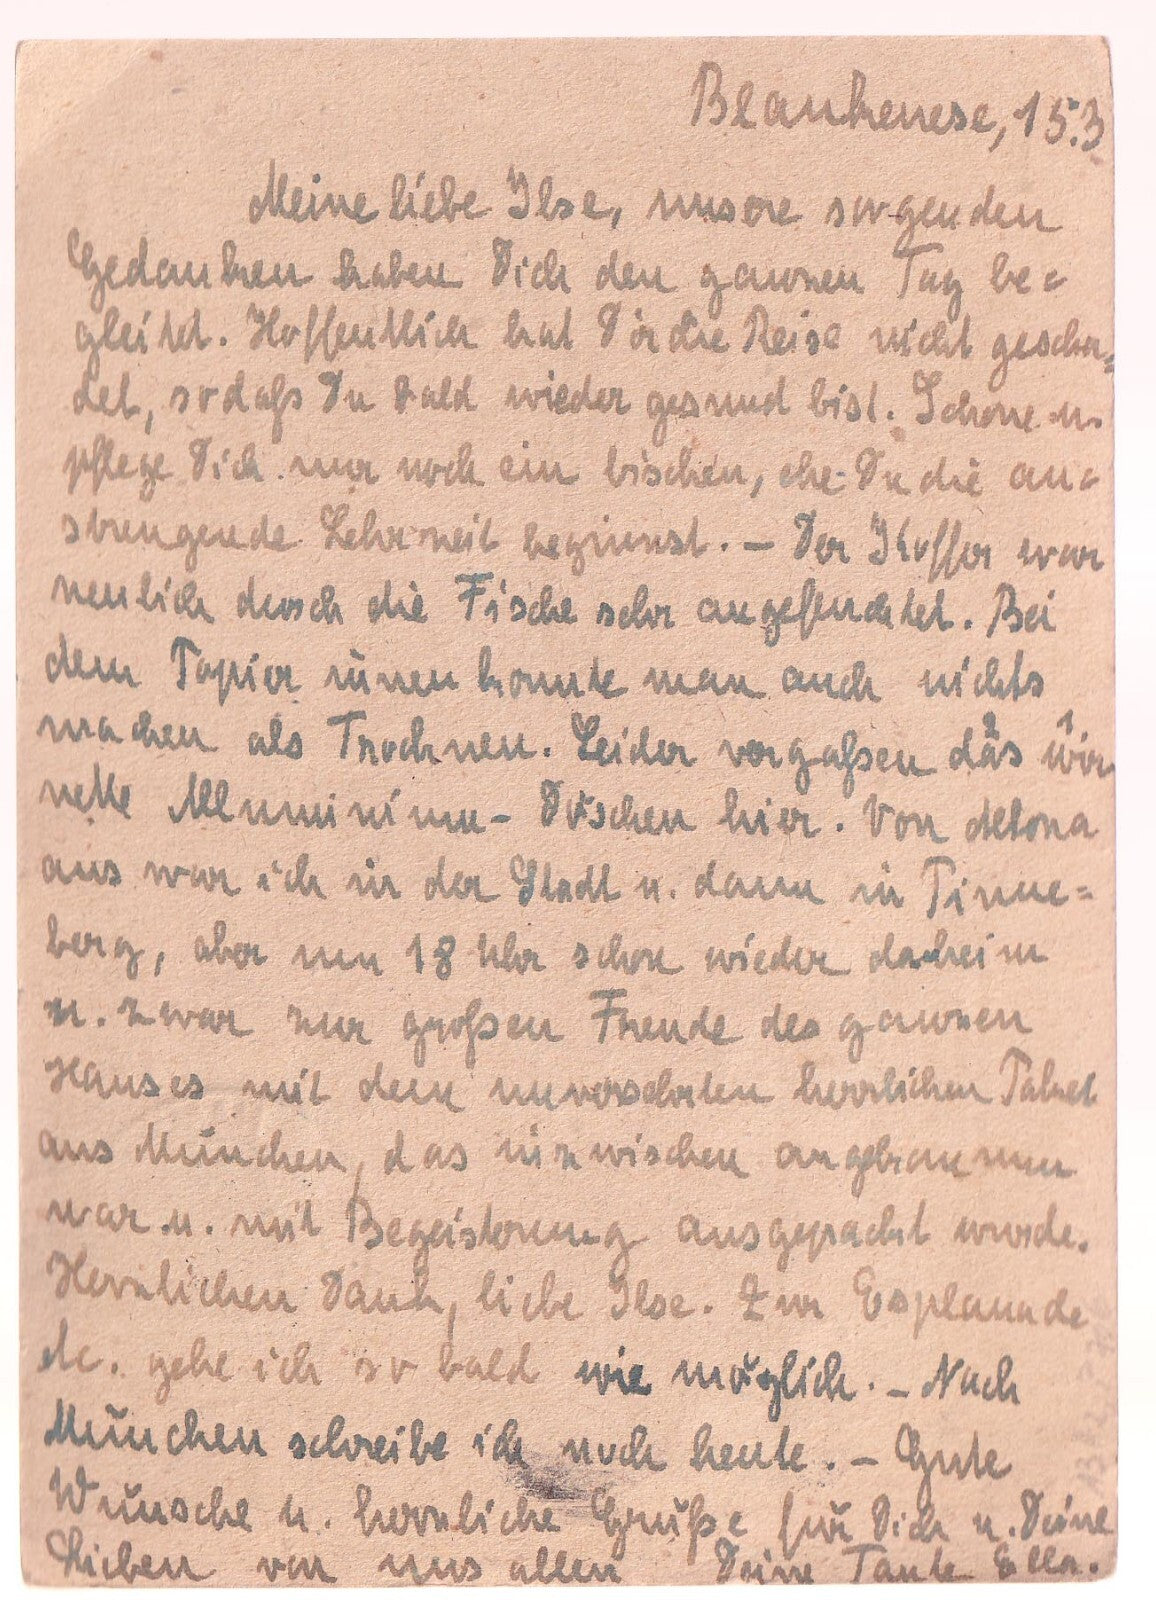 Blankenese, 15.3
Meine liebe Ilse, unsere sorgenden
Gedanken haben Dich den ganzen Tag be-
gleitet. Hoffentlich hat Dir die Reise nicht gescha-
det, sodaß Du bald wieder gesund bist. Schone u.
pflege Dich nur noch ein bischen, ehe Du die an-
strengende Lehrzeit beginnst. – Der Koffer war
neulich durch die Fische sehr angefeuchtet. Bei
dem Papier innen konnte man auch nichts
machen als Trocknen. Leider vergaßen das 2 wir 1
nette Alluminium- Döschen hier. Von Altona
aus war ich in der Stadt u. dann in Pinne=
berg, aber um 18 Uhr schon wieder daheim
u. zwar zur großen Freude des ganzen
Hauses mit dem unversehrten herrlichen Paket
aus München, das inzwischen angekommen
war u. mit Begeisterung ausgepackt wurde.
Herzlichen Dank, liebe Ilse. Zur Esplanade
etc. gehe ich so bald wie möglich. – Nach
München schreibe ich noch heute. – Gute
Wünsche u. herzliche Grüße für Dich u. Deine
Lieben von uns allen Deine Tante Ella.